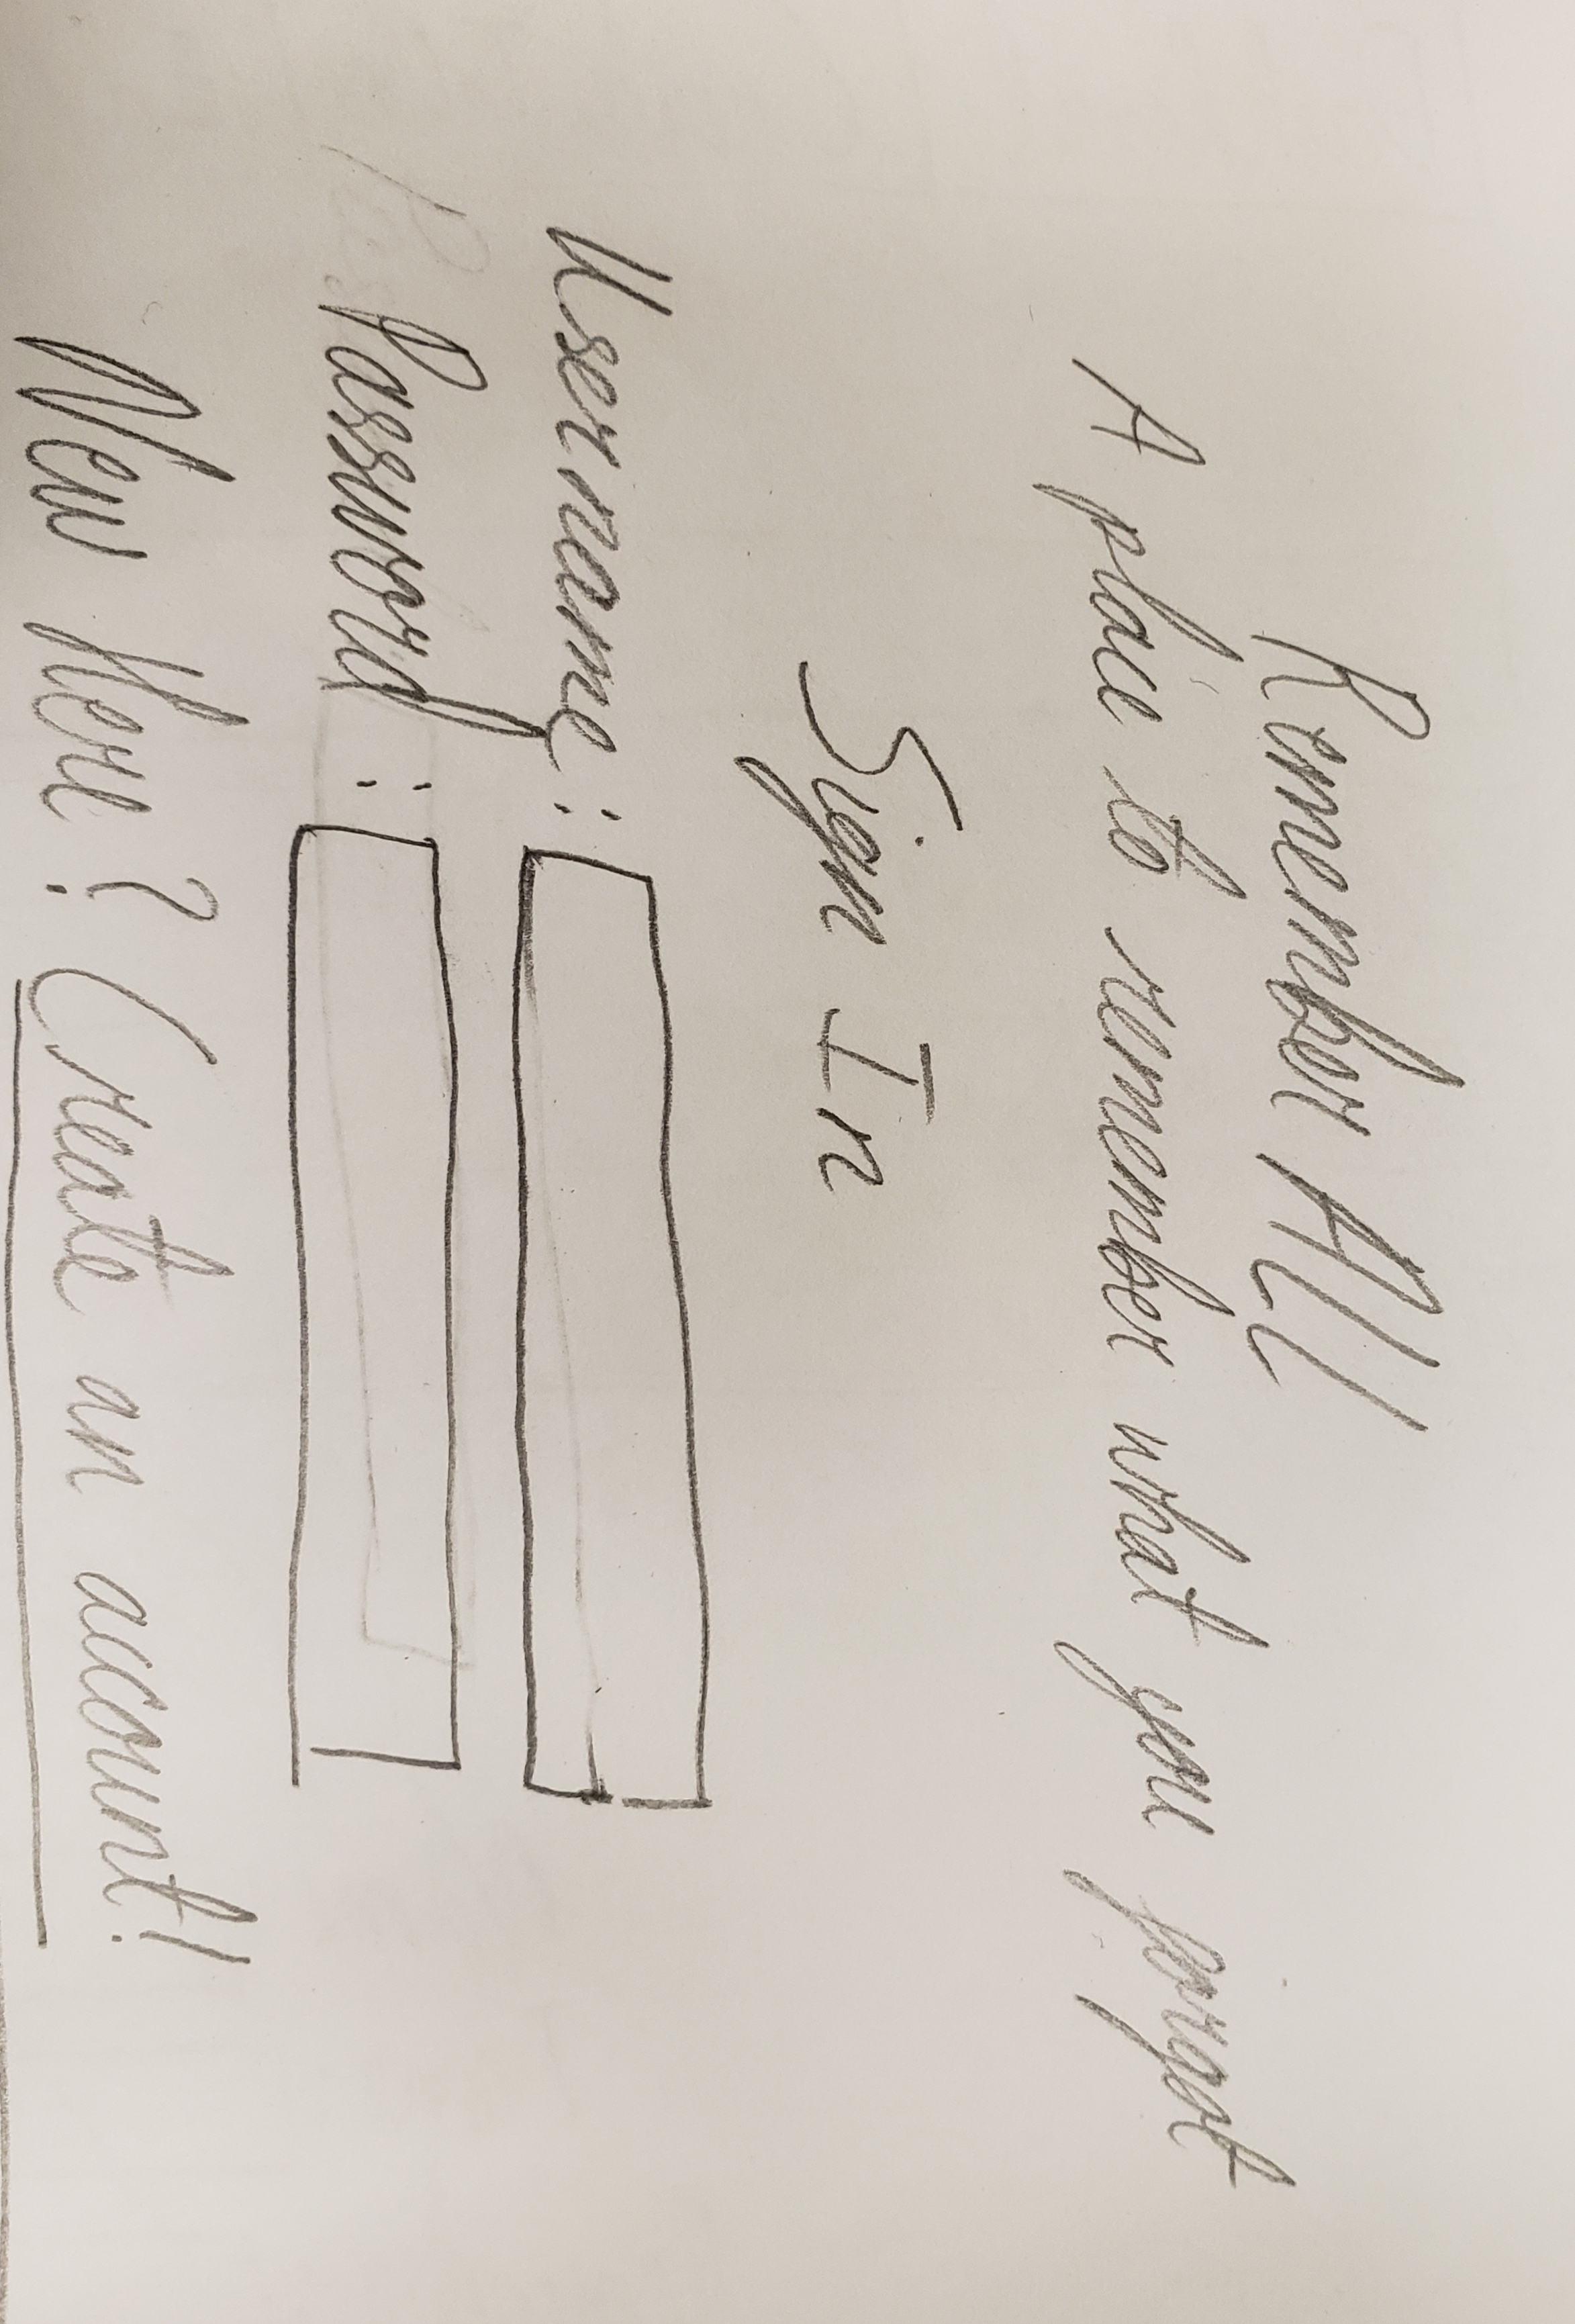 Remember All
A place to remember what you forgot
Sign In
Username:
Password:
New Here? Create an account!